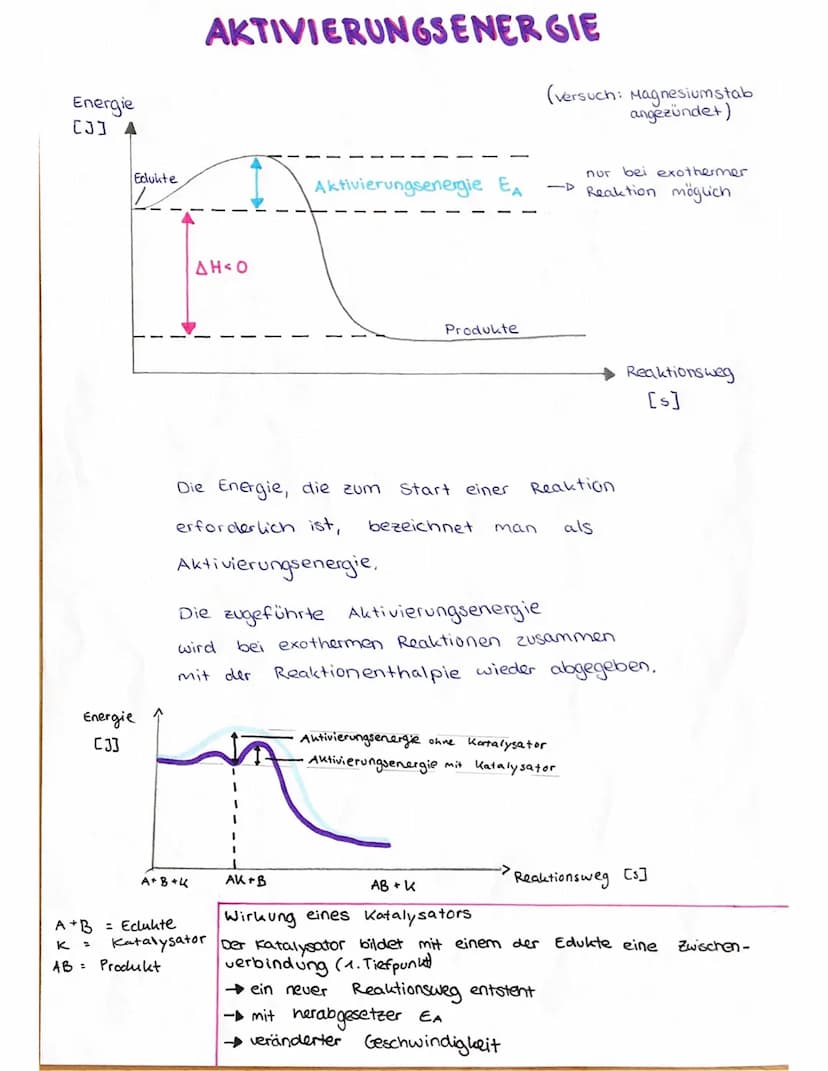 AKTIVIERUNGSENERGIE
(Versuch: Magnesiumstab
angezündet)
Energie
[J]
Edukte
Aktivierungsenergie EA
→ nur bei exothermer
Reaktion möglich
ΔH<0
Produkte
Reaktionsweg
[s]
Die Energie, die zum Start einer Reaktion
erforderlich ist, bezeichnet man als
Aktivierungsenergie.
Die zugeführte Aktivierungsenergie
wird bei exothermen Reaktionen zusammen
mit der Reaktionenthalpie wieder abgegeben.
Energie
[J]
Aktivierungsenergie ohne Katalysator
Aktivierungsenergie mit Katalysator
Reaktionsweg [s]
A+B+K
AK+B
AB+K
A+B = Edukte
K = Katalysator
AB = Produkt
Wirkung eines Katalysators
Der Katalysator bildet mit einem der Edukte eine Zwischen-
verbindung (1. Tiefpunkt)
→ ein neuer Reaktionsweg entsteht
→ mit herabgesetzer EA
→ veränderter Geschwindigkeit